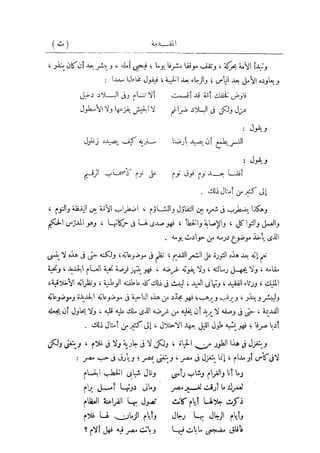 المقدمة (ث)
وتبدأ الأمة بحركة ، وتقف موقفا مشرفا يوما ؛ فيحيى أمله ، ويبشر بعد أن كان ينذر ،
ويعاوده الأمل بعد اليأس ؛ والرجاء بعد الخيبة ، فيقول مخاطبا سعدا :
فاوض فخلفك أمة قد أقسمت ألا تنام وفى البلاد دخيل
عزل ولكن فى البلاد ضراغم لا الجيش يفزعها ولا الأسطول
ويقول :
النسر يطمع أن يصيد بأرضنا سنريه كيف يصيده زغلول
ويقول :
أفقنا بعد نوم فوق نوم على نوم كأصحاب الرقيم
إلى كثير من أمثال ذلك .
وهكذا يضطرب فى شعره بين التفاؤل والتشاؤم ، اضطراب الأمة بين اليقظة والنوم ،
والعمل والتواكل ، والإصابة والخطأ ، فهو صدى لها فى حركاتها ، وهو المدرس الحكيم
الذى يأخذ موضوع درسه من حوادث يومه .
نعم إنه بعد هذه الثورة على الشعر القديم ، نظم فى موضوعاته ، ولكنه حتى فى هذه لا ينسى
مقامه ، ولا يجهل رسالته ، ولا يفوته غرضه ، فهو ينتهز فرصة تحية العام الجديد ، وتحية
المليك ، ورثاء الفقيد ، وتهانى العيد ، ليبث فى ذلك كله عاطفته الوطنية ، ونظراته الأخلاقية ،
وليبشر وينذر ، ويرغب ويرهب ؛ فهو مجدّد من هذه الناحية فى موضوعاته الجديدة وموضوعاته
القديمة ، حتى فى وصفه لا يريد أن يخليه من غرضه الذى ملك عليه قلبه ، ولا يحاول أن يجعله
أدبا صرفا ؛ فهو يشبه طول الليل بعهد الاحتلال ، إلى كثير من أمثال ذلك .
ويتغزل فى هذا الطور من الحياة ، ولكن لا فى جارية ولا فى غلام ، ويتغنى ولكن
لا فى كأس أو مدام ، إنما يتغزل فى مصر ، ويتغنى بمصر ؛ ويأرق فى حب مصر :
وما أنا والغرام وشاب رأسى وغال شبابى الخطب الجسام
لعمرك ما أرقت لغير مصر ومالى دونها أمل يرام
ذكرت جلالها أيام كانت تصول بها الفراعنة العظام
وأيام الرجال بها رجال وأيام الزمان لها غلام
فأقلق مضجعى ما بات فيها وباتت مصر فيه فهل ألام ؟